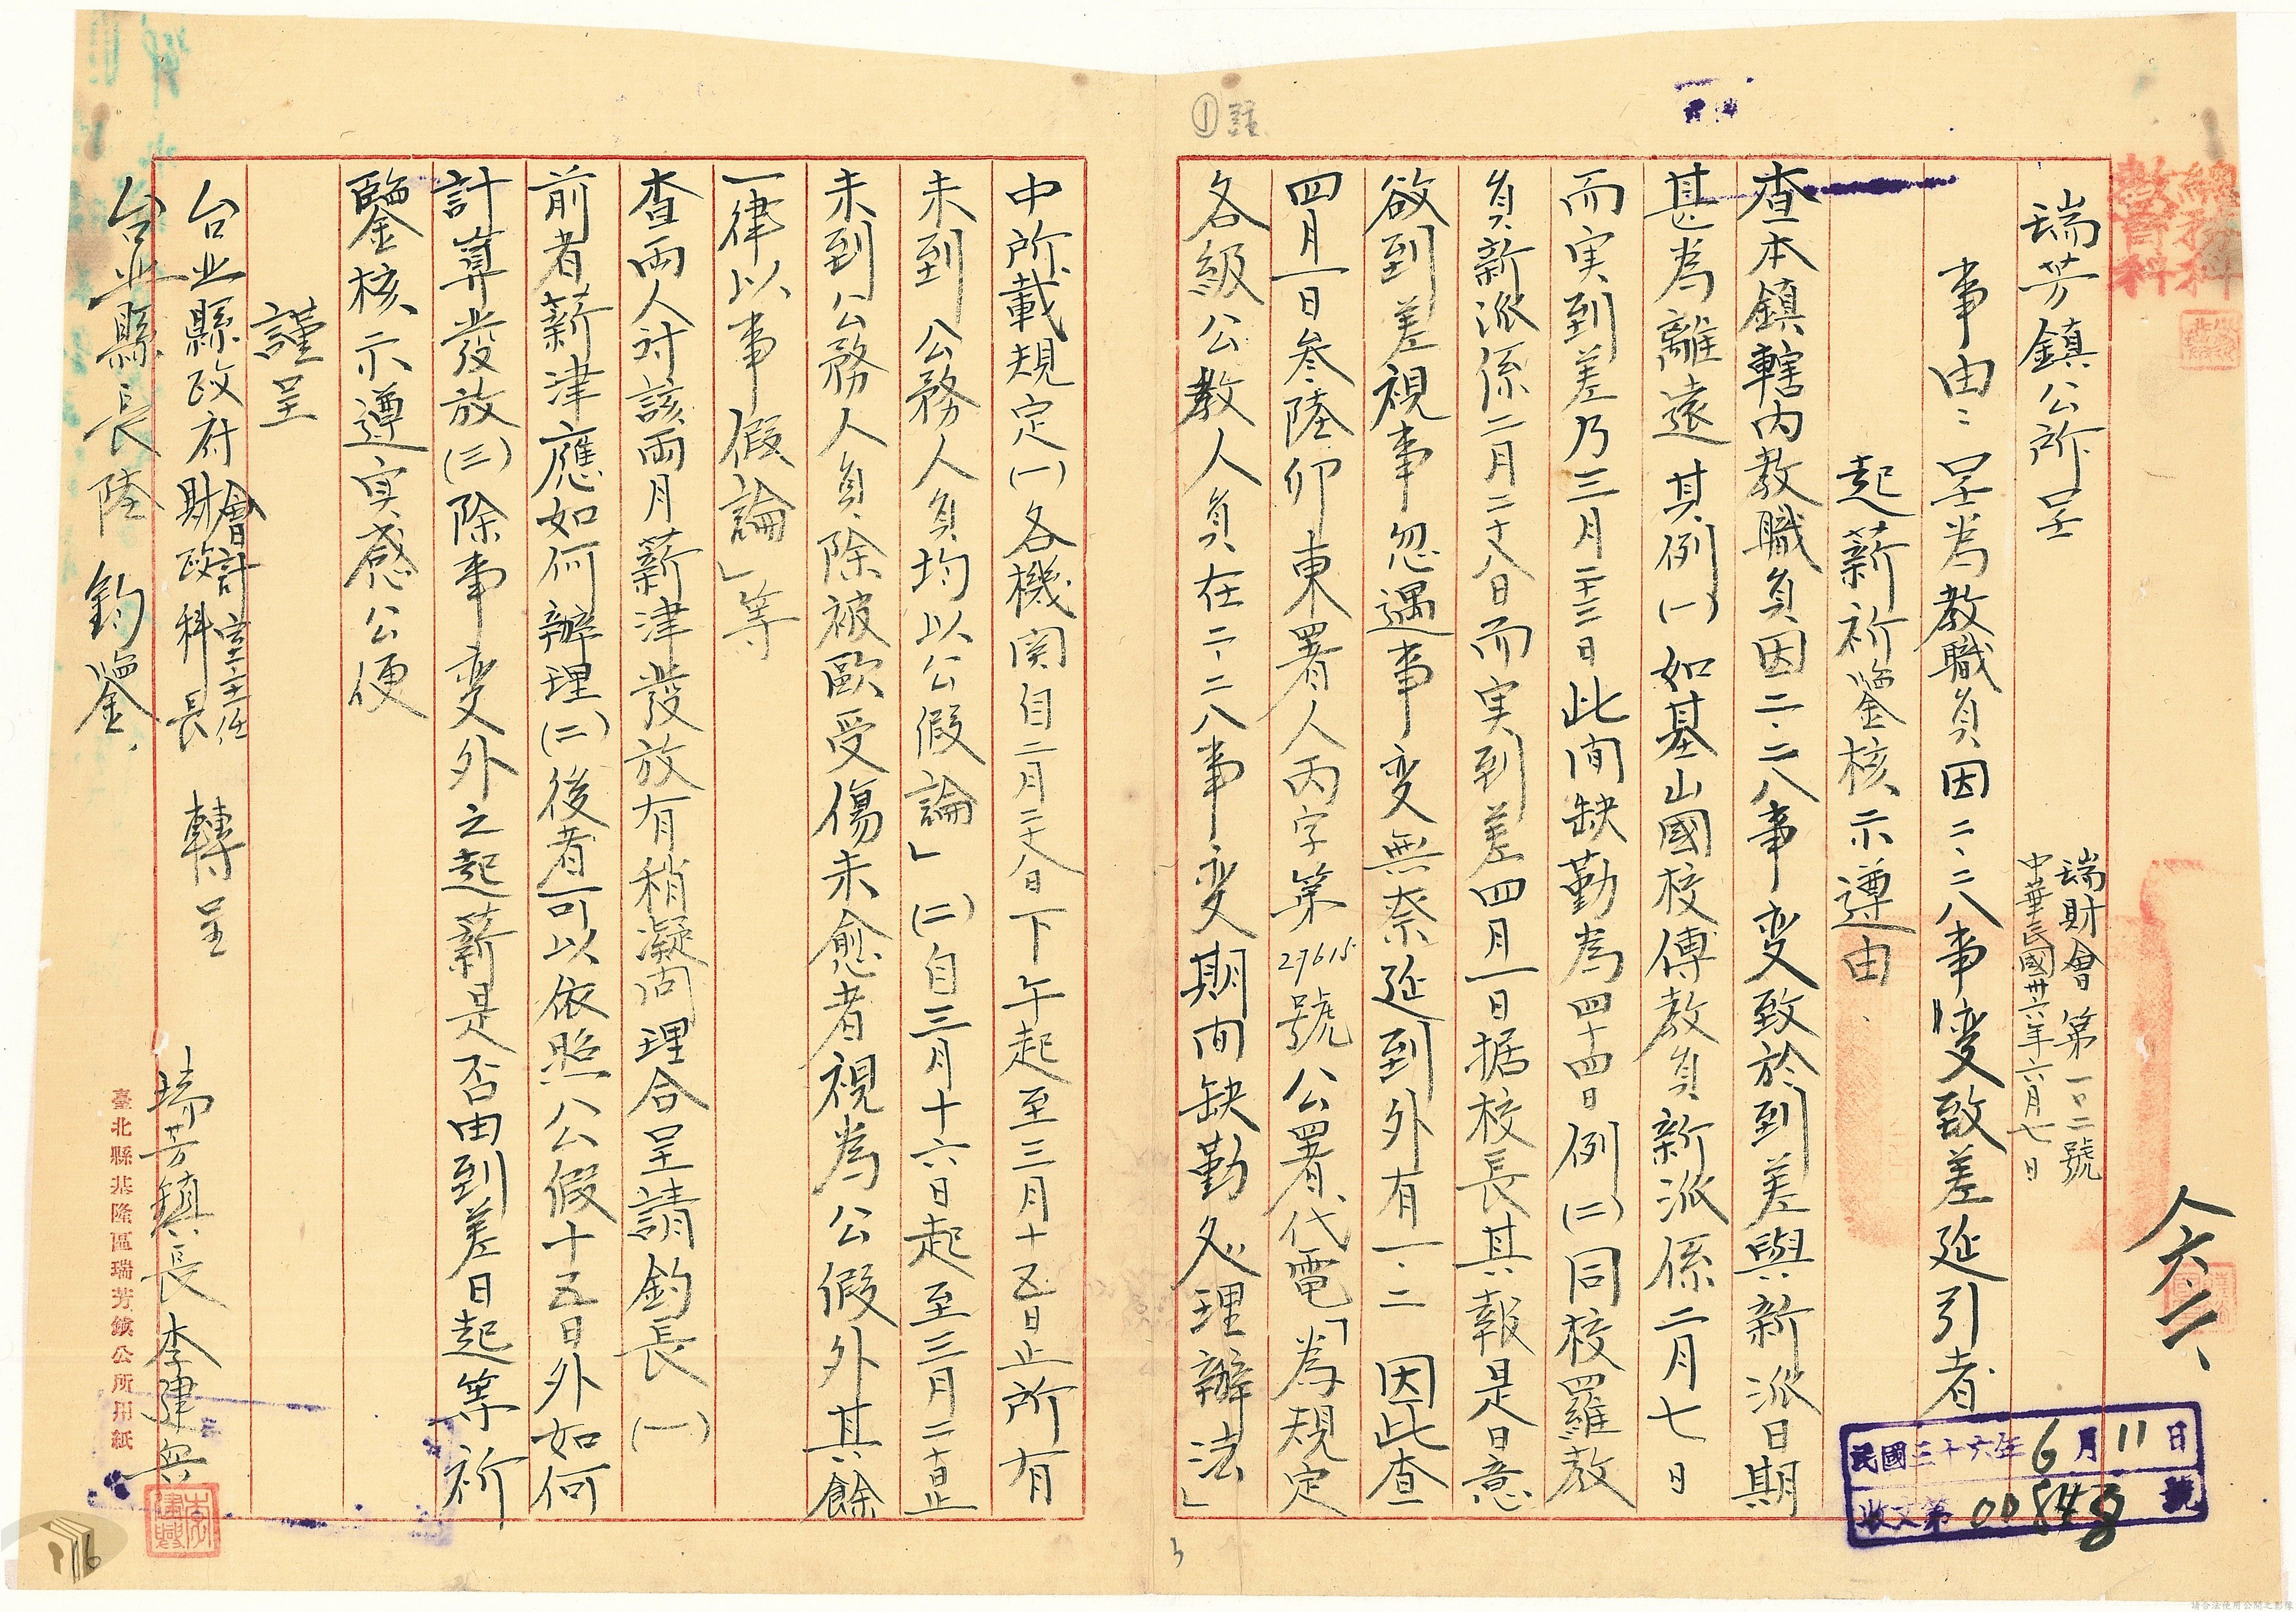 瑞芳鎮公所 呈
瑞財會 第一〇二號
中華民國卅六年六月七日
事由：呈為教職員因二、二八事變致差延引者
起薪祈鑒核示遵由
查本鎮轄內教職員因二、二八事变致於到差與新派日期
甚為離遠 其例(一)如基山國校傅教員新派係二月七日
而実到差乃三月二十三日此间缺勤為四十四日 例(二)同校羅教
員新派係二月二十八日而実到差四月一日据校長其報是日意
欲到差視事忽遇事变無奈延到外有一、二 因此查
四月一日叁陸卯東署人丙字第27615號公署代電「為規定
各級公教人員在二、二八事变期间缺勤处理辦法」
中所載規定(一)各機関自二月二十八日下午起至三月十五日止所有
未到公務人員均以公假論」(二)自三月十六日起至三月二十日止
未到公務人員除被歐受傷未愈者視為公假外其餘
一律以事假論」等
查両人対該両月薪津發放有稍凝问理合呈請鈞長(一)
前者薪津應如何辦理(二)後者可以依照公假十五日外如何
計算發放(三)除事变外之起薪是否由到差日起等祈
鑒核示遵実感公便
謹呈
台北縣政府 會計室主任
財政科長 轉呈
台北縣長陸 鈞鑒
瑞芳鎮長 李建兴
臺北縣基隆區瑞芳鎮公所用紙
李建興
總務科
教育科
民國三十六年6月11日
收文第00848號
①註
176
3
請合法使用公開之影像